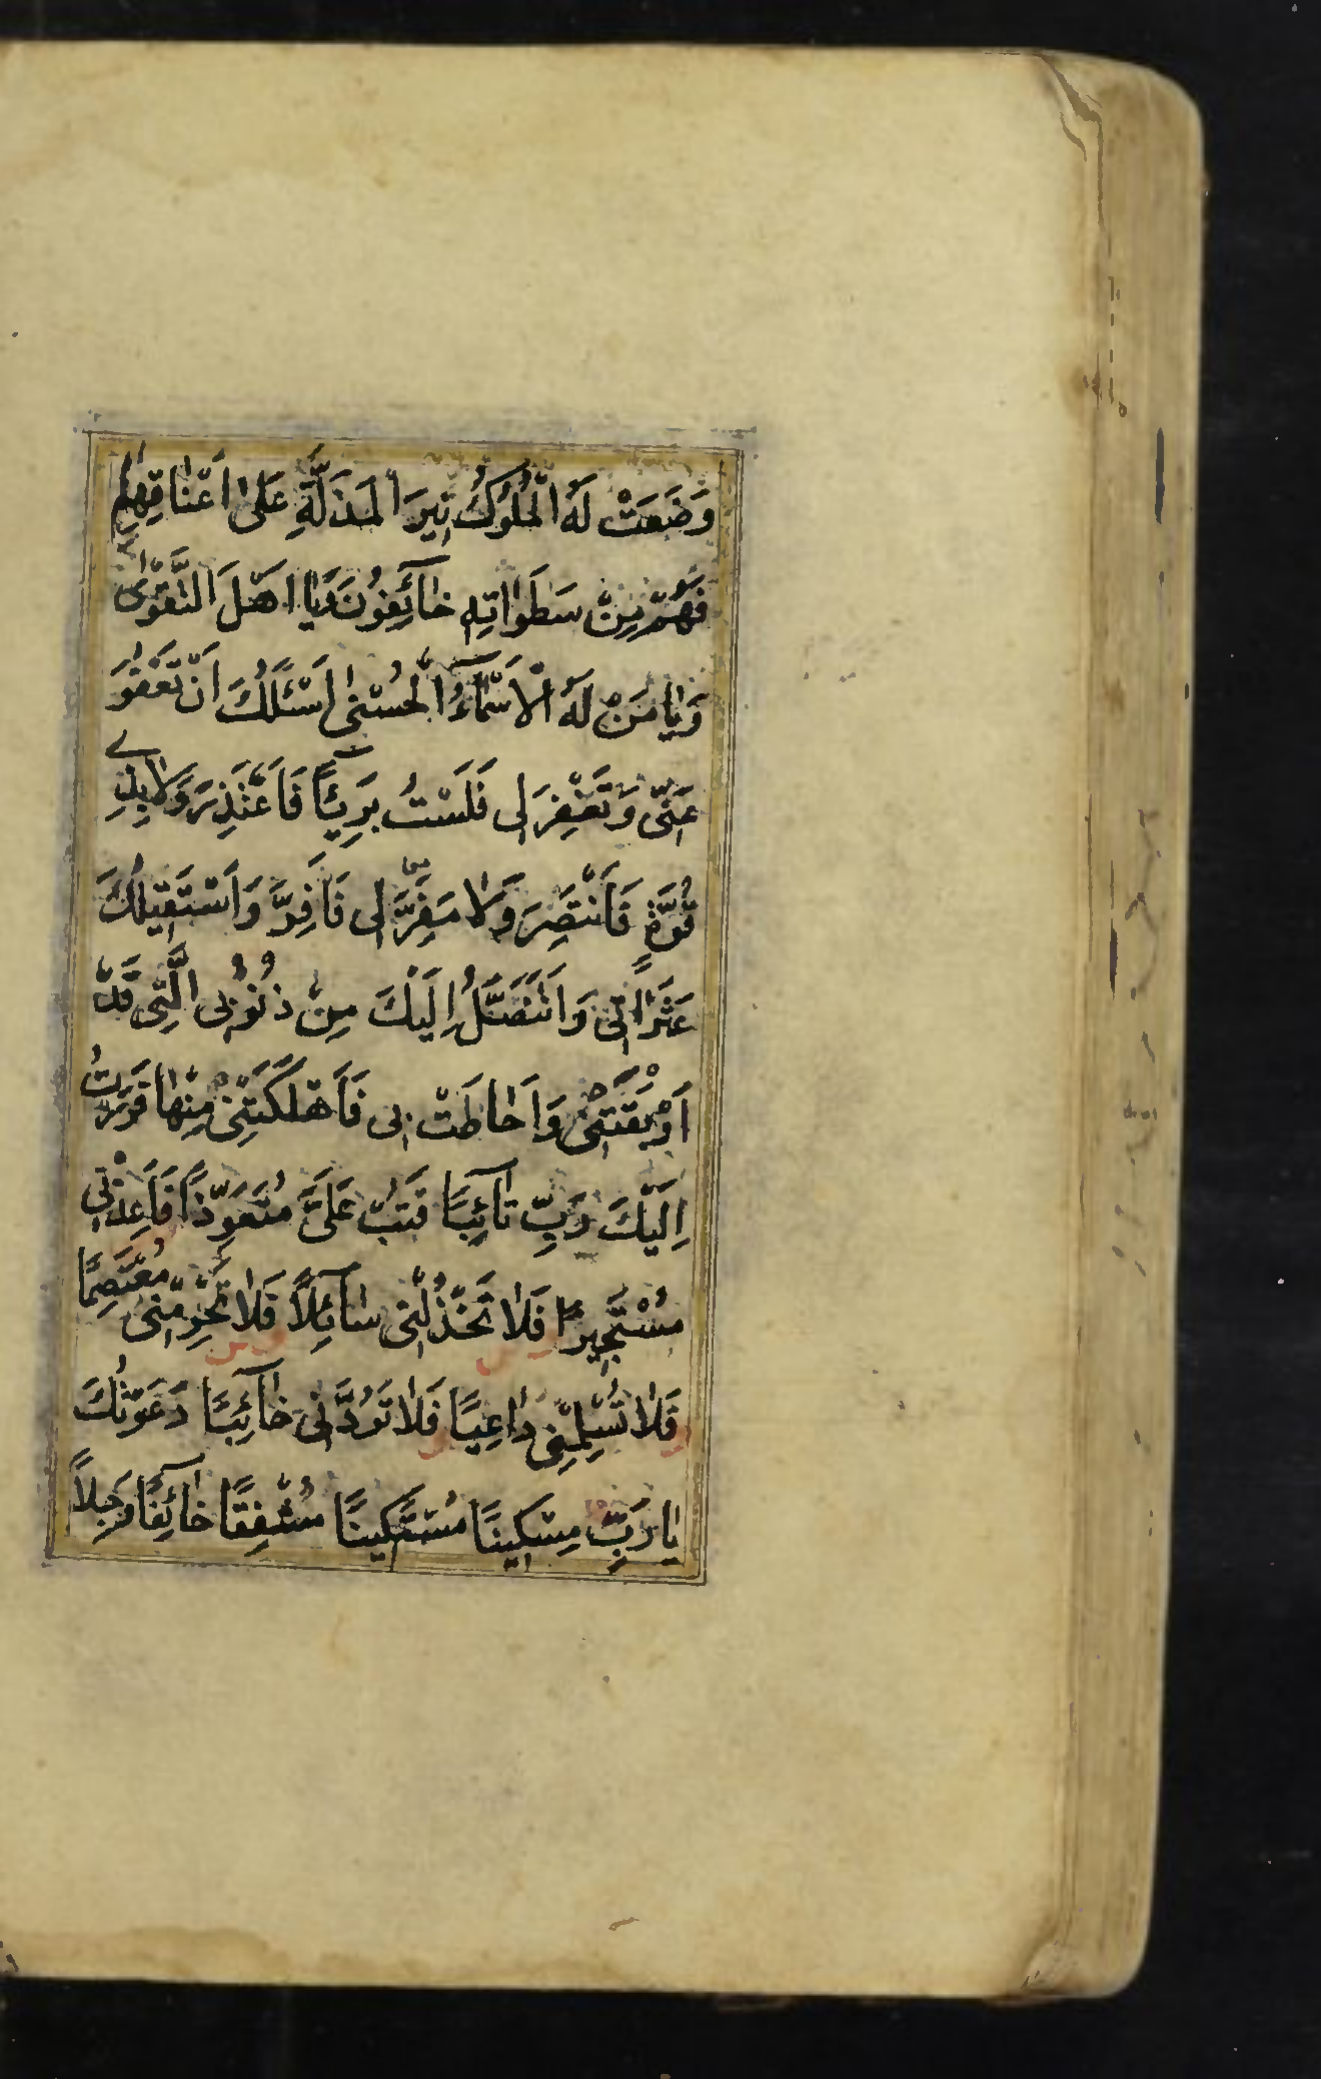 وَضَعَتْ لَهُ الْمُلُوكُ نِيرَ الْمَذَلَّةِ عَلىٰ اَعْنَاقِهِمْ
فَهُمْ مِنْ سَطَوَاتِهِ خٰآئِفُونَ وَيٰا اَهْلَ التَّقْوٰى
وَيٰا مَنْ لَهُ الْاَسْمَآءُ الْحُسْنىٰ اَسْئَلُكَ اَنْ تَعْفُوَ
عَنّى وَتَغْفِرَ لى فَلَسْتُ بَرِيٓئًا فَاَعْتَذِرَ وَلَا بِذِے
قُوَّةٍ فَاَنْتَصِرَ وَلٰا مَفَرَّ لى فَاَفِرَّ وَاَسْتَقِيلُكَ
عَثَرٰاتى وَاَتَنَصَّلُ اِلَيْكَ مِنْ ذُنُوبى الَّتِى قَدْ
اَوْبَقَتْنى وَاَحٰاطَتْ بى فَاَهْلَكَتْنِى مِنْهٰا فَرَرْتُ
اِلَيْكَ رَبِّ تٰآئِبًا فَتُبْ عَلَىَّ مُتَعَوِّذًا فَاَعِذْنِى
مُسْتَجِيرًا فَلٰا تَخْذُلْنِى سٰآئِلًا فَلٰا تَحْرِمْنِى مُعْتَصِمًا
فَلٰا تُسْلِمْنِى دٰاعِيًا فَلٰا تَرُدَّنِى خٰآئِبًا دَعَوْتُكَ
يٰا رَبِّ مِسْكِينًا مُسْتَكِينًا مُشْفِقًا خٰآئِفًا وَجِلاً